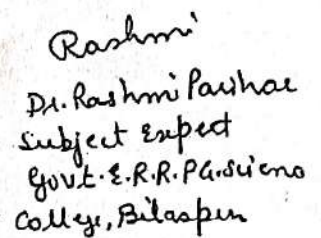 Rashmi
Dr. Rashmi Parihar
Subject Expert
Govt. E.R.R. PG. Science
College, Bilaspur